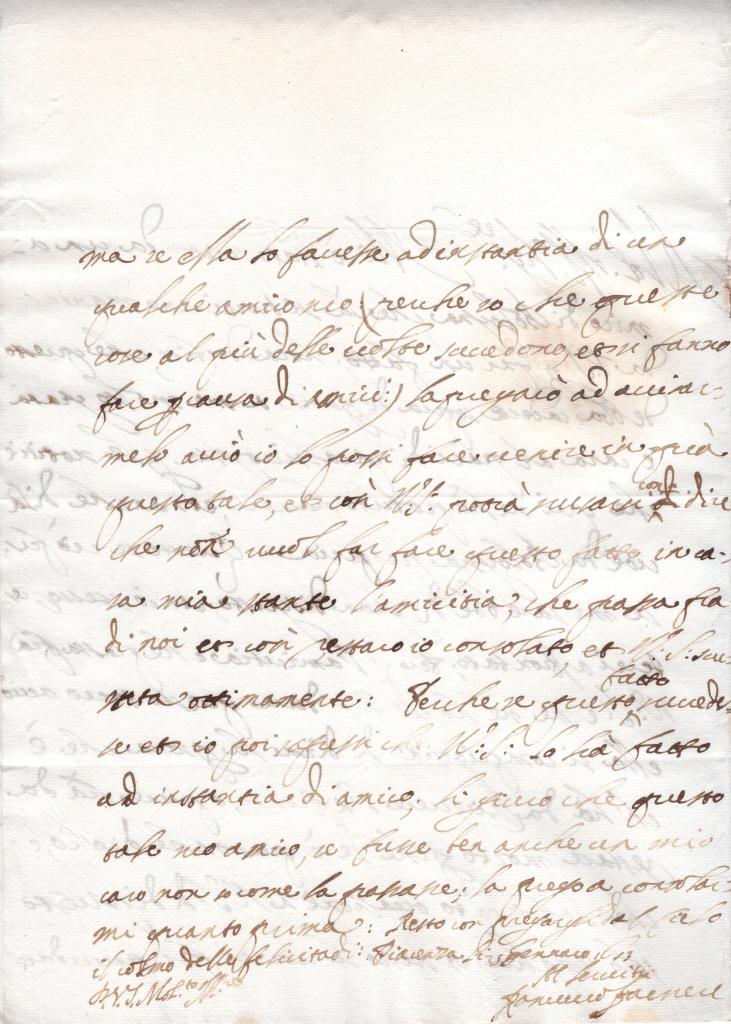 ma se ella lo facesse ad instantia di un
qualche amico suo (perche so che queste
cose al più delle uolte succedono, et si fanno
fare per causa di amici:) la pregarò ad auisar-
melo acciò io lo possi fare uenire in quà
questo tale, et così V.S. potrà scusarsi con dire
che non uuol far fare questo fatto in ca-
sa mia stante l'amicitia, che passa fra
di noi et così restarò io consolato, et V.S. scu-
ottimamente: Perche se questo fatto succede-
se et io poi sapessi che V.S. lo hà fatto
ad instantia di amico, li giuro che questo
tale suo amico, se fusse ben anche un mio
caro non so come la passase; la prego a consolar-
mi quanto prima: Resto con pregargli dal cielo
il colmo delle felicità di Piacenza li Gennaro
D.V.S. Mol.to